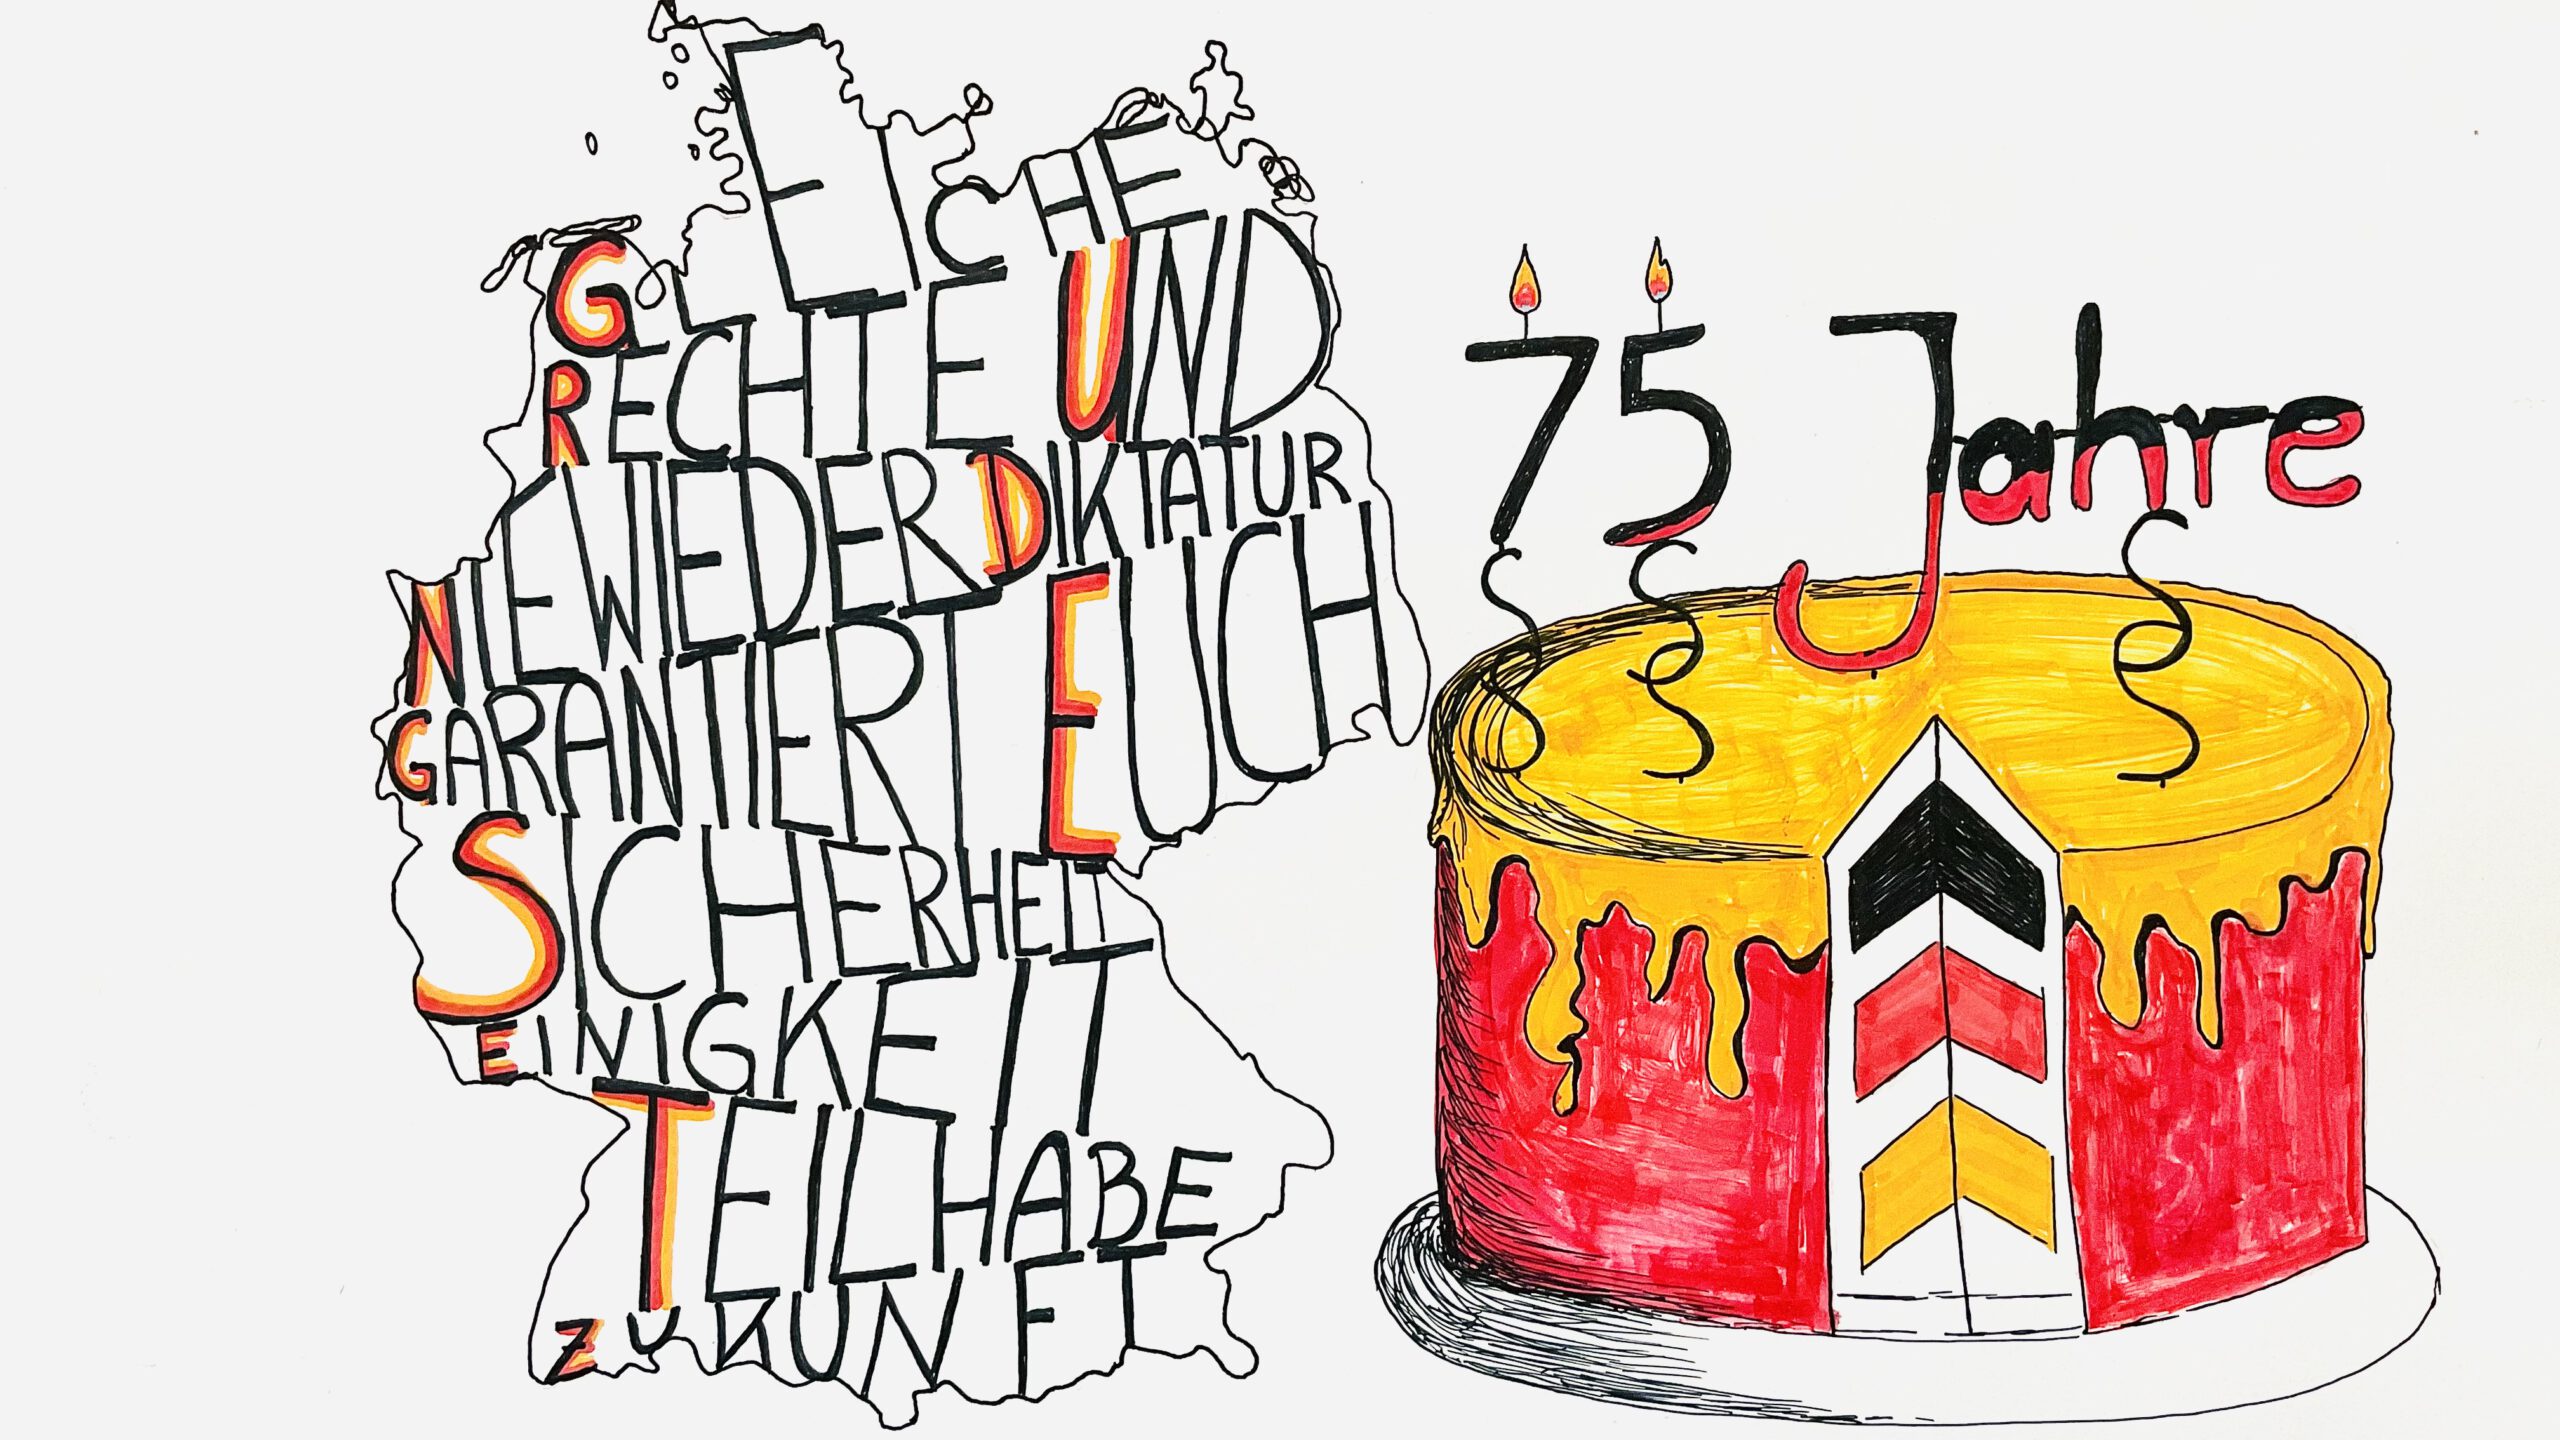 GLEICHE
RECHTE UND
NIE WIEDER DIKTATUR
GARANTIERT EUCH
SICHERHEIT
EINIGKEIT
TEILHABE
ZUKUNFT
75 Jahre